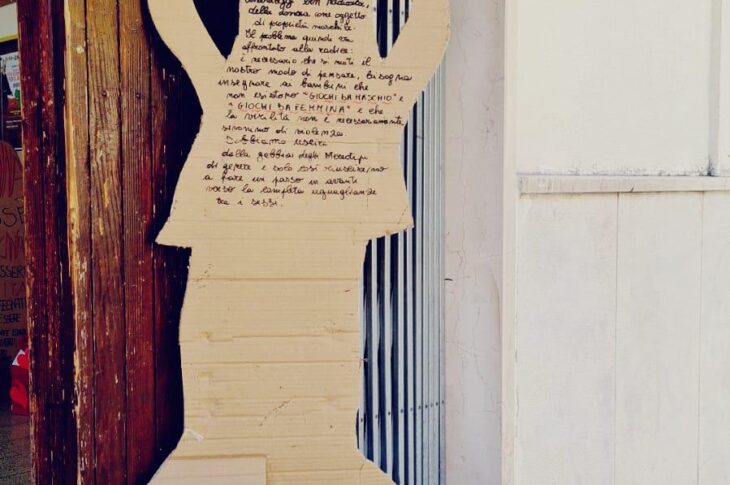 ben radicata
della donna come oggetto
di proprietà maschile.
Il problema quindi va
affrontato alla radice:
è necessario che si muti il
nostro modo di pensare, bisogna
insegnare ai bambini che
non esistono "GIOCHI DA MASCHIO" e
"GIOCHI DA FEMMINA" e che
la virilità non è necessariamente
sinonimo di violenza.
Dobbiamo uscire
dalla gabbia degli stereotipi
di genere e solo così riusciremo
a fare un passo in avanti
verso la completa uguaglianza
tra i sessi.